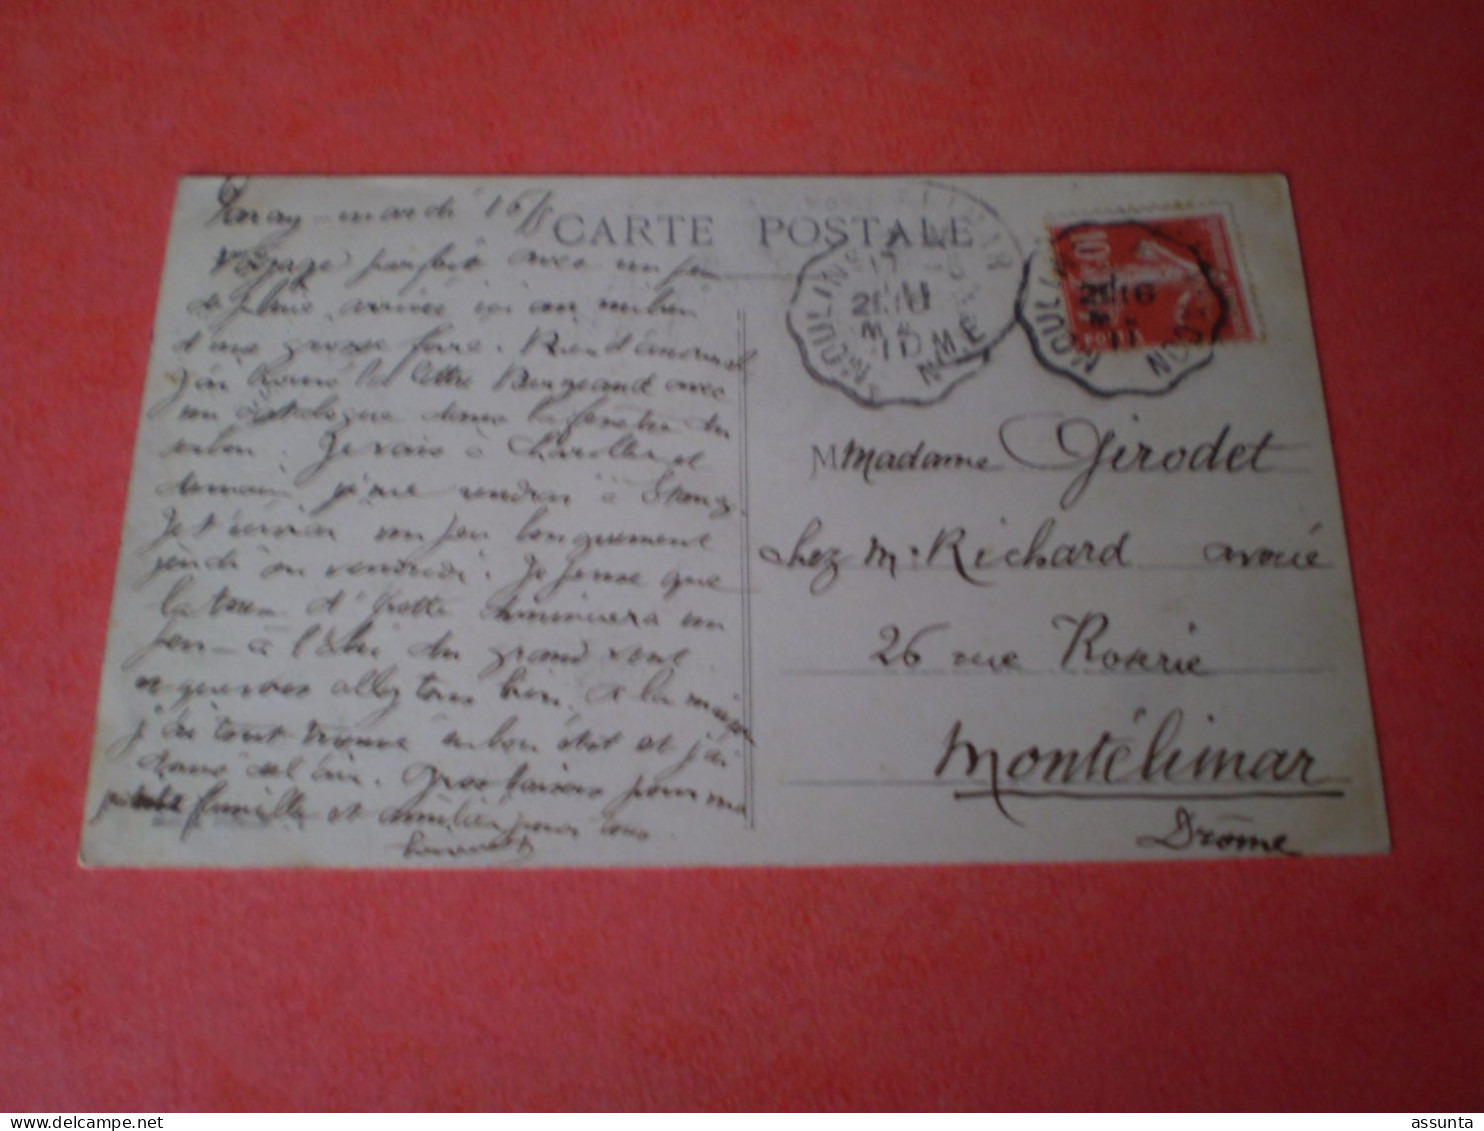 Paray - mardi 16/5
CARTE POSTALE
Voyage parfait avec un peu
de pluie, arrivée ici au milieu
d'une grosse foire. Rien d'anormal
J'ai trouvé la lettre avec
un catalogue dans la fenêtre du
salon. Je vais à Charolles et
demain je me rendrai à
Je t'écrirai un peu longuement
jeudi ou vendredi. Je pense que
la toux d' diminuera un
peu - à l'abri du grand vent
et que vous allez tous bien. A la maison
j'ai tout trouvé en bon état et j'ai
donné de l'air. Gros baisers pour ma
petite famille et amitiés pour tous
MOULINS
21 16
MAI
11
MACON
10
POSTES
MMadame Girodet
chez Mr Richard avoué
26 rue Roserie
Montélimar
Drôme
assunta